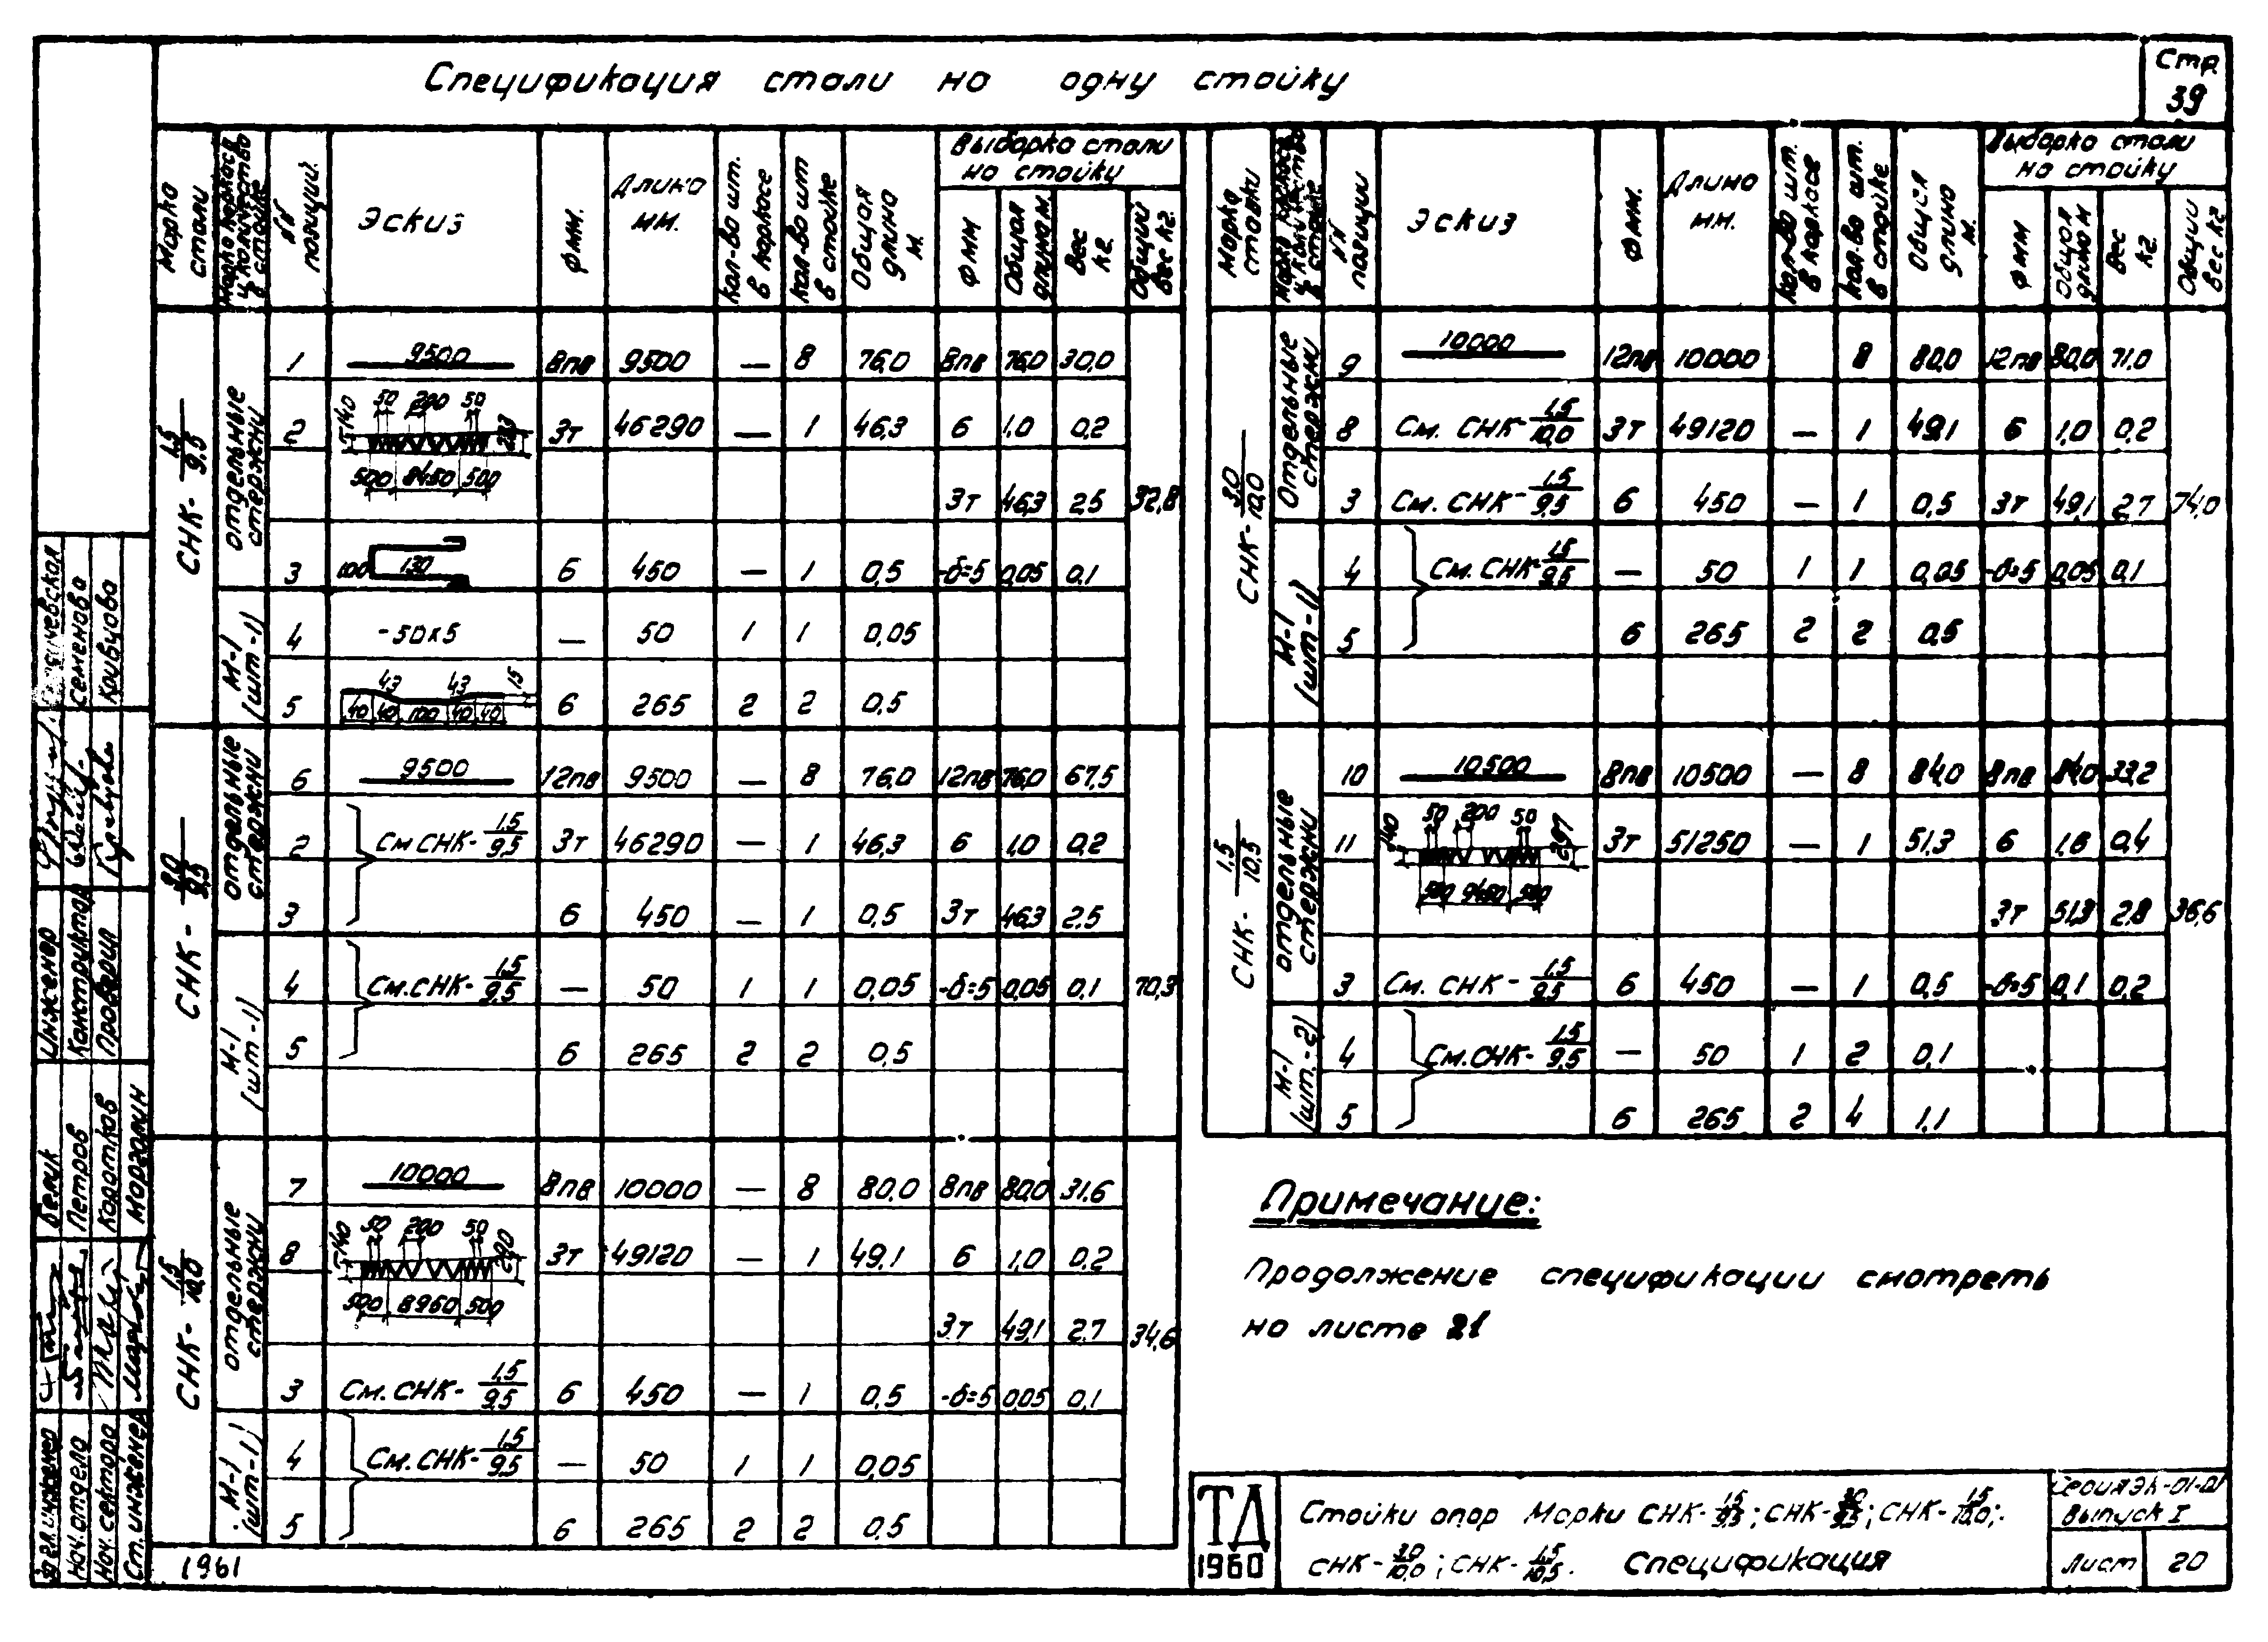 Спецификация стали на одну стойку
Стр.
39
Марка стали
Марка каркаса и количество в стойке
№№ позиций
Эскиз
Ф мм.
Длина мм.
Кол-во шт. в каркасе
Кол-во шт в стойке
Общая длина м.
Выборка стали на стойку
Ф мм
Общая длина м.
Вес кг.
Общий вес кг.
СНК-1,5/9,5
Отдельные стержни
1 9500 8пв 9500 — 8 76,0 8пв 76,0 30,0
2 140 50 200 50 283 500 8450 500 3т 46290 — 1 46,3 6 1,0 0,2
3т 46,3 2,5 32,8
3 100 130 6 450 — 1 0,5 -δ=5 0,05 0,1
М-1 (шт-1)
4 -50х5 — 50 1 1 0,05
5 43 43 15 40 40 100 40 40 6 265 2 2 0,5
СНК-3,0/9,5
Отдельные стержни
6 9500 12пв 9500 — 8 76,0 12пв 76,0 67,5
2 См СНК-1,5/9,5 3т 46290 — 1 46,3 6 1,0 0,2
3 6 450 — 1 0,5 3т 46,3 2,5
М-1 (шт-1)
4 См. СНК-1,5/9,5 — 50 1 1 0,05 -δ=5 0,05 0,1 70,3
5 6 265 2 2 0,5
СНК-1,5/10,0
Отдельные стержни
7 10000 8пв 10000 — 8 80,0 8пв 80,0 31,6
8 140 50 200 50 290 500 8960 500 3т 49120 — 1 49,1 6 1,0 0,2
3т 49,1 2,7 34,6
3 См. СНК-1,5/9,5 6 450 — 1 0,5 -δ=5 0,05 0,1
М-1 (шт-1)
4 См. СНК-1,5/9,5 — 50 1 1 0,05
5 6 265 2 2 0,5
1961
Марка стойки
Марка каркаса и количество в стойке
№№ позиции
Эскиз
Ф мм.
Длина мм.
Кол-во шт. в каркасе
Кол-во шт. в стойке
Общая длина м.
Выборка стали на стойку
Ф мм
Общая длина м
Вес кг.
Общий вес кг
СНК-3,0/10,0
Отдельные стержни
9 10000 12пв 10000 8 80,0 12пв 80,0 71,0
8 См. СНК-1,5/10,0 3т 49120 — 1 49,1 6 1,0 0,2
3 См. СНК-1,5/9,5 6 450 — 1 0,5 3т 49,1 2,7 74,0
М-1 (шт-1)
4 См. СНК-1,5/9,5 — 50 1 1 0,05 -δ=5 0,05 0,1
5 6 265 2 2 0,5
СНК-1,5/10,5
Отдельные стержни
10 10500 8пв 10500 — 8 84,0 8пв 84,0 33,2
11 140 50 200 50 297 500 9450 500 3т 51250 — 1 51,3 6 1,6 0,4
3т 51,3 2,8 36,6
3 См. СНК-1,5/9,5 6 450 — 1 0,5 -δ=5 0,1 0,2
М-1 (шт.-2)
4 См. СНК-1,5/9,5 — 50 1 2 0,1
5 6 265 2 4 1,1
Примечание:
Продолжение спецификации смотреть
на листе 21
ТД
1960
Стойки опор Марки СНК-1,5/9,5; СНК-3,0/9,5; СНК-1,5/10,0;
СНК-3,0/10,0; СНК-1,5/10,5. Спецификация
Серия ЭК-01-01
Выпуск I
Лист 20
Инженер
Конструктор Семенова
Проверил Кривцова
инженер Белик
Нач. отдела Петров
Нач. сектора Коротков
Ст. инженер Марголин